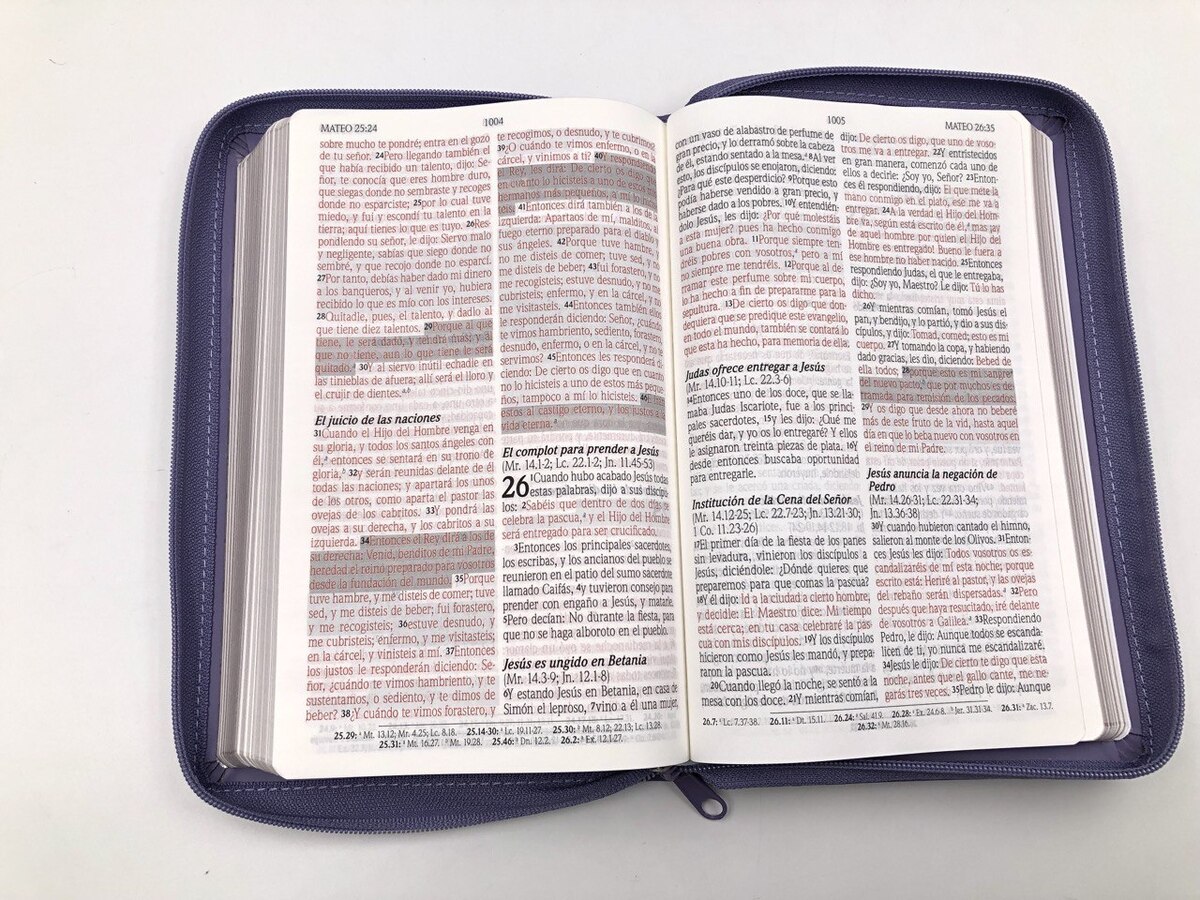 MATEO 25:24
1004
sobre mucho te pondré; entra en el gozo
de tu señor. 24Pero llegando también el
que había recibido un talento, dijo: Se-
ñor, te conocía que eres hombre duro,
que siegas donde no sembraste y recoges
donde no esparciste; 25por lo cual tuve
miedo, y fui y escondí tu talento en la
tierra; aquí tienes lo que es tuyo. 26Res-
pondiendo su señor, le dijo: Siervo malo
y negligente, sabías que siego donde no
sembré, y que recojo donde no esparcí.
27Por tanto, debías haber dado mi dinero
a los banqueros, y al venir yo, hubiera
recibido lo que es mío con los intereses.
28Quitadle, pues, el talento, y dadlo al
que tiene diez talentos. 29Porque al que
tiene, le será dado, y tendrá más; y al
que no tiene, aun lo que tiene le será
quitado.a 30Y al siervo inútil echadle en
las tinieblas de afuera; allí será el lloro y
el crujir de dientes.a,b
El juicio de las naciones
31Cuando el Hijo del Hombre venga en
su gloria, y todos los santos ángeles con
él,a entonces se sentará en su trono de
gloria,b 32y serán reunidas delante de él
todas las naciones; y apartará los unos
de los otros, como aparta el pastor las
ovejas de los cabritos. 33Y pondrá las
ovejas a su derecha, y los cabritos a su
izquierda. 34Entonces el Rey dirá a los de
su derecha: Venid, benditos de mi Padre,
heredad el reino preparado para vosotros
desde la fundación del mundo. 35Porque
tuve hambre, y me disteis de comer; tuve
sed, y me disteis de beber; fui forastero,
y me recogisteis; 36estuve desnudo, y
me cubristeis; enfermo, y me visitasteis;
en la cárcel, y vinisteis a mí. 37Entonces
los justos le responderán diciendo: Se-
ñor, ¿cuándo te vimos hambriento, y te
sustentamos, o sediento, y te dimos de
beber? 38¿Y cuándo te vimos forastero, y
te recogimos, o desnudo, y te cubrimos?
39¿O cuándo te vimos enfermo, o en la
cárcel, y vinimos a ti? 40Y respondiendo
el Rey, les dirá: De cierto os digo que
en cuanto lo hicisteis a uno de estos mis
hermanos más pequeños, a mí lo hicis-
teis. 41Entonces dirá también a los de la
izquierda: Apartaos de mí, malditos, al
fuego eterno preparado para el diablo y
sus ángeles. 42Porque tuve hambre, y
no me disteis de comer; tuve sed, y no
me disteis de beber; 43fui forastero, y no
me recogisteis; estuve desnudo, y no me
cubristeis; enfermo, y en la cárcel, y no
me visitasteis. 44Entonces también ellos
le responderán diciendo: Señor, ¿cuándo
te vimos hambriento, sediento, forastero,
desnudo, enfermo, o en la cárcel, y no te
servimos? 45Entonces les responderá di-
ciendo: De cierto os digo que en cuanto
no lo hicisteis a uno de estos más peque-
ños, tampoco a mí lo hicisteis. 46E irán
estos al castigo eterno, y los justos a la
vida eterna.a
El complot para prender a Jesús
(Mr. 14.1-2; Lc. 22.1-2; Jn. 11.45-53)
26 1Cuando hubo acabado Jesús todas
estas palabras, dijo a sus discípu-
los: 2Sabéis que dentro de dos días se
celebra la pascua,a y el Hijo del Hombre
será entregado para ser crucificado.
3Entonces los principales sacerdotes,
los escribas, y los ancianos del pueblo se
reunieron en el patio del sumo sacerdote
llamado Caifás, 4y tuvieron consejo para
prender con engaño a Jesús, y matarle.
5Pero decían: No durante la fiesta, para
que no se haga alboroto en el pueblo.
Jesús es ungido en Betania
(Mr. 14.3-9; Jn. 12.1-8)
6Y estando Jesús en Betania, en casa de
Simón el leproso, 7vino a él una mujer,
25.29: a Mt. 13.12; Mr. 4.25; Lc. 8.18. 25.14-30: a Lc. 19.11-27. 25.30: b Mt. 8.12; 22.13; Lc. 13.28.
25.31: a Mt. 16.27. b Mt. 19.28. 25.46: a Dn. 12.2. 26.2: a Ex. 12.1-27.
1005
MATEO 26:35
con un vaso de alabastro de perfume de
gran precio, y lo derramó sobre la cabeza
de él, estando sentado a la mesa.a 8Al ver
esto, los discípulos se enojaron, diciendo:
¿Para qué este desperdicio? 9Porque esto
podía haberse vendido a gran precio, y
haberse dado a los pobres. 10Y entendién-
dolo Jesús, les dijo: ¿Por qué molestáis
a esta mujer? pues ha hecho conmigo
una buena obra. 11Porque siempre ten-
dréis pobres con vosotros,a pero a mí
no siempre me tendréis. 12Porque al de-
rramar este perfume sobre mi cuerpo,
lo ha hecho a fin de prepararme para la
sepultura. 13De cierto os digo que don-
dequiera que se predique este evangelio,
en todo el mundo, también se contará lo
que esta ha hecho, para memoria de ella.
Judas ofrece entregar a Jesús
(Mr. 14.10-11; Lc. 22.3-6)
14Entonces uno de los doce, que se lla-
maba Judas Iscariote, fue a los princi-
pales sacerdotes, 15y les dijo: ¿Qué me
queréis dar, y yo os lo entregaré? Y ellos
le asignaron treinta piezas de plata. 16Y
desde entonces buscaba oportunidad
para entregarle.
Institución de la Cena del Señor
(Mr. 14.12-25; Lc. 22.7-23; Jn. 13.21-30;
1 Co. 11.23-26)
17El primer día de la fiesta de los panes
sin levadura, vinieron los discípulos a
Jesús, diciéndole: ¿Dónde quieres que
preparemos para que comas la pascua?
18Y él dijo: Id a la ciudad a cierto hombre,
y decidle: El Maestro dice: Mi tiempo
está cerca; en tu casa celebraré la pas-
cua con mis discípulos. 19Y los discípulos
hicieron como Jesús les mandó, y prepa-
raron la pascua.
20Cuando llegó la noche, se sentó a la
mesa con los doce. 21Y mientras comían,
dijo: De cierto os digo, que uno de voso-
tros me va a entregar. 22Y entristecidos
en gran manera, comenzó cada uno de
ellos a decirle: ¿Soy yo, Señor? 23Enton-
ces él respondiendo, dijo: El que mete la
mano conmigo en el plato, ese me va a
entregar. 24A la verdad el Hijo del Hom-
bre va, según está escrito de él,a mas ¡ay
de aquel hombre por quien el Hijo del
Hombre es entregado! Bueno le fuera a
ese hombre no haber nacido. 25Entonces
respondiendo Judas, el que le entregaba,
dijo: ¿Soy yo, Maestro? Le dijo: Tú lo has
dicho.
26Y mientras comían, tomó Jesús el
pan, y bendijo, y lo partió, y dio a sus dis-
cípulos, y dijo: Tomad, comed; esto es mi
cuerpo. 27Y tomando la copa, y habiendo
dado gracias, les dio, diciendo: Bebed de
ella todos; 28porque esto es mi sangre
del nuevo pacto,a que por muchos es de-
rramada para remisión de los pecados.
29Y os digo que desde ahora no beberé
más de este fruto de la vid, hasta aquel
día en que lo beba nuevo con vosotros en
el reino de mi Padre.
Jesús anuncia la negación de
Pedro
(Mr. 14.26-31; Lc. 22.31-34;
Jn. 13.36-38)
30Y cuando hubieron cantado el himno,
salieron al monte de los Olivos. 31Enton-
ces Jesús les dijo: Todos vosotros os es-
candalizaréis de mí esta noche; porque
escrito está: Heriré al pastor, y las ovejas
del rebaño serán dispersadas.a 32Pero
después que haya resucitado, iré delante
de vosotros a Galilea.a 33Respondiendo
Pedro, le dijo: Aunque todos se escanda-
licen de ti, yo nunca me escandalizaré.
34Jesús le dijo: De cierto te digo que esta
noche, antes que el gallo cante, me ne-
garás tres veces. 35Pedro le dijo: Aunque
26.7: a Lc. 7.37-38. 26.11: a Dt. 15.11. 26.24: a Sal. 41.9. 26.28: a Ex. 24.6-8. b Jer. 31.31-34. 26.31: a Zac. 13.7.
26.32: a Mt. 28.16.